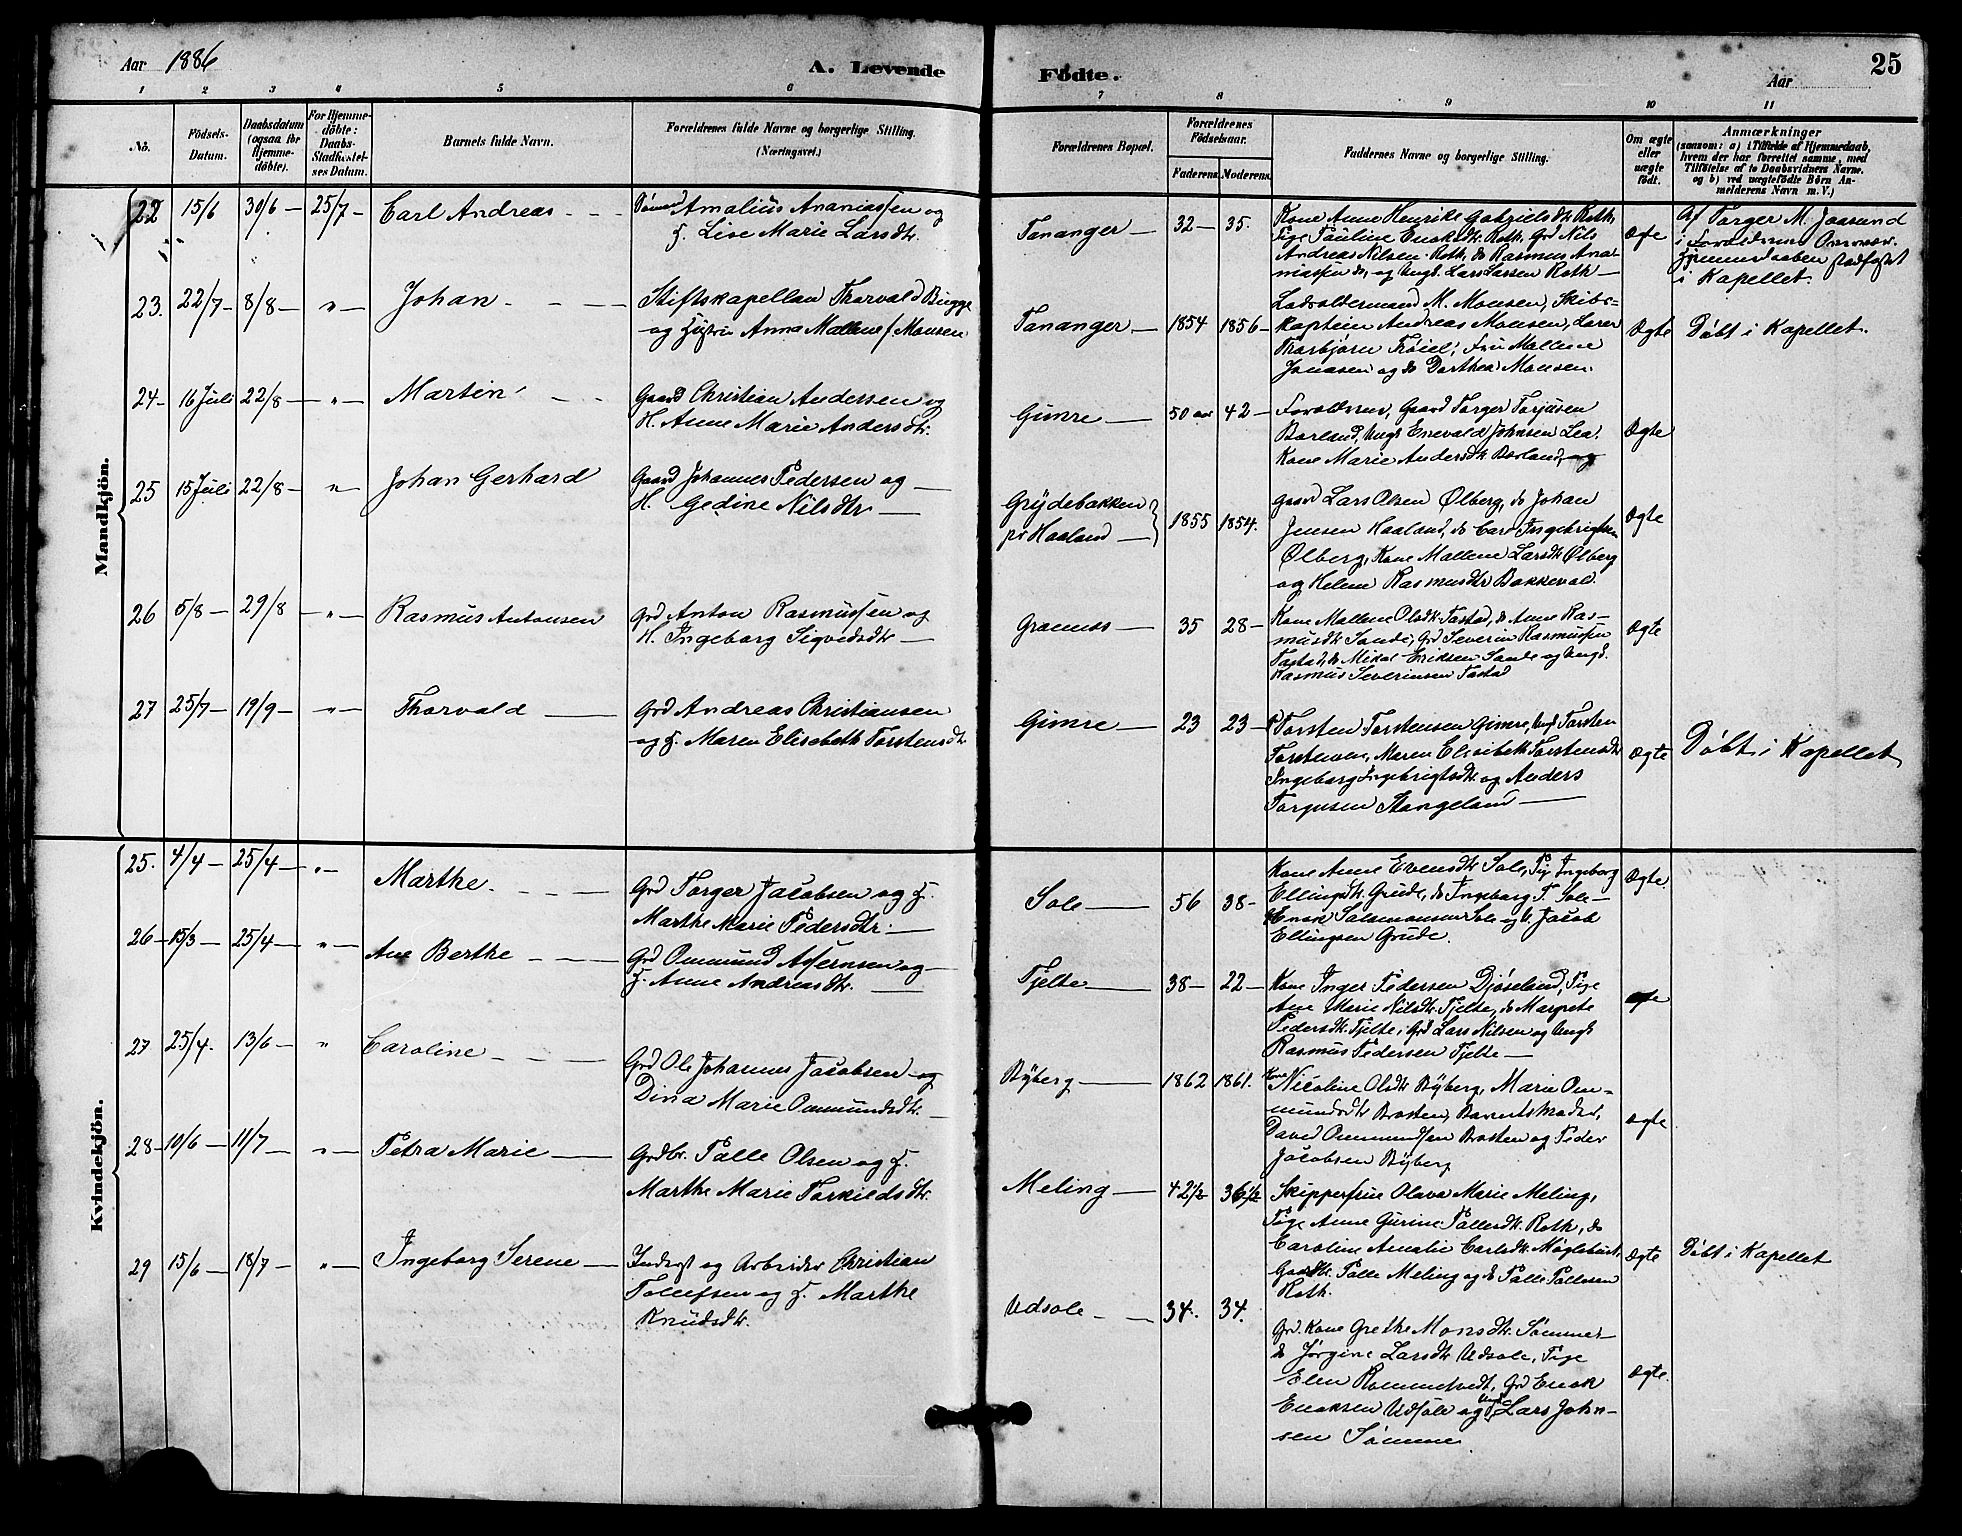 Aar 1886
A. Levende
Fødte.
Aar
25
1 2 3 4 5 6 7 8 9 10 11
No.
Födsels-
Datum.
Daabsdatum
(ogsaa for
Hjemme-
döbte).
For Hjemme-
döbte:
Daabs-
Stadfæstel-
ses Datum.
Barnets fulde Navn.
Forældrenes fulde Navne og borgerlige Stilling.
(Næringsvei.)
Forældrenes Bopæl.
Forældrenes
Födselsaar.
Faderens. Moderens.
Faddernes Navne og borgerlige Stilling.
Om ægte
eller
uægte
født.
Anmærkninger
(saasom: a) i Tilfælde af Hjemmedaab,
hvem der har forrettet samme, med
Tilföielse af to Daabsvidners Navne.
og b) ved uægtefödte Börn An-
melderens Navn m. V.)
Mandkjön.
22 15/6 30/6 — 25/7 — Carl Andreas
Amalius Ananiassen og
F. Lise Marie Larsdtr.
Tananger — 32 — 35.
Kone Anne Henrike Gabrielsdtr Roth,
Pige Pauline Enoksdtr. Roth. Grd Nils
Andreas Nilsen Roth, do Rasmus Ana-
niassen do, og Ungk. Lars Larsen Roth —
Ægte
Af Torger M. Joasund
i Forældrenes
Hjemmedaaben stadfæstet
i Kapellet.
23. 22/7 — 8/8 — " — Johan
Stiftskapellan Thorvald Bugge
og Hustru Anna Mallene f. Monsen
Tananger — 1854 1856 —
Lodsoldermand M. Monsen, Skibs-
kaptein Andreas Monsen, Lærer
Thorbjørn Trøiel, Fru Mallene
Jonassen og do Dorthea Monsen.
Ægte
Døbt i Kapellet.
24 — 16 Juli 22/8 — " — Martin
Gaard Christian Andersen og
H. Anne Marie Andersdtr.
Gimre — 50 aar 42 —
Forældrene, Gaard Torger Torjusen
Borland, Ungk Enevald Johnsen Lea.
Kone Marie Andersdtr Borland, og
Ægte
25 15 Juli 22/8 — " Johan Gerhard
Gaard Johannes Pedersen og —
H. Gedine Nilsdtr —
Grydebakken
pr Haaland —
1855 1854.
Gaard Lars Olsen Ølberg, do Johan
Jensen Haaland, do Carl Ingebrigtsen
Ølberg, Kone Mallene Larsdtr Ølberg
og Helene Rasmusdtr Bakkevol.
Ægte
26 5/8 — 29/8 — " — Rasmus Antonsen
Grd Anton Rasmussen og
H. Ingeborg Sigvedsdtr —
Grannes — 35 28 —
Kone Mallene Olsdtr. Tastad, do Anne Ras-
musdtr Sande, Grd Severin Rasmussen
Tastad, do Mikal Eriksen Sande og Ungk.
Rasmus Severinsen Tastad
Ægte
27 25/7 — 19/9 — " — Thorvald —
Grd Andreas Christiansen
og F. Maren Elisabeth Torstensdtr
Gimre — 23 23 —
Torsten Torstensen Gimre, Ungk Torsten
Torstensen, Maren Elisabeth Torstensdtr
Ingeborg Ingebrigtsdtr og Anders
Torgusen Stangeland —
Ægte
Døbt i Kapellet
Kvindekjön.
25. 4/4 — 25/4 — " — Marthe
Grd Torger Jacobsen og F.
Marthe Marie Pedersdtr. —
Sole — 56 38 —
Kone Anne Evensdtr Sole, Pig Ingeborg
Ellingsdtr Grude, do Ingeborg T. Sole —
Enok Salomonsen Sole og U. Jacob
Ellingsen Grude.
Ægte
26 — 15/3 — 25/4 — " — Ane Berthe
Grd Ommund Assernsen og —
F. Anne Andreasdtr. —
Tjelte — 38 — 22 —
Kone Inger Pedersen Djøseland, Pige
Ane Marie Nilsdtr Tjelte, do Margrete
Pedersdtr. Tjelte, Grd Lars Nilsen og Ungk
Rasmus Pedersen Tjelte —
Ægte
27 25/4. 13/6 — " Caroline
Grd Ole Johannes Jacobsen og
Dina Marie Ommundsdtr. —
Byberg — 1862 1861.
Kone Nicoline Olsdtr Byberg, Marie Om-
mundsdtr Brosten, Barnets Moder,
David Ommundsen Brosten og Peder
Jacobsen Byberg
Ægte
28 — 10/6 — 11/7 — " — Petra Marie —
Grdbr. Palle Olsen og F.
Marthe Marie Torkildsdtr.
Meling — 42 1/2 36 1/2
Skipperfrue Olava Marie Meling,
Pige Anne Gurine Pallesdtr. Roth, do
Caroline Amalie Carlsdtr Møglebust,
Gaardbr. Palle Meling og do Palle Pallesen
Roth.
Ægte
Døbt i Kapellet
29 15/6 — 18/7 — " — Ingeborg Serene —
Inderst og Arbeider Christian
Tollefsen og F. Marthe
Knudsdtr.
Udsole — 34. 34.
Grd. Kone Grethe Monsdtr. Sømme —
do Jørgine Larsdtr Udsole, Pige
Elen Rommetvedt, Grd Enok
Enoksen Udsole og Ungk Lars John-
sen Sømme.
Ægte.